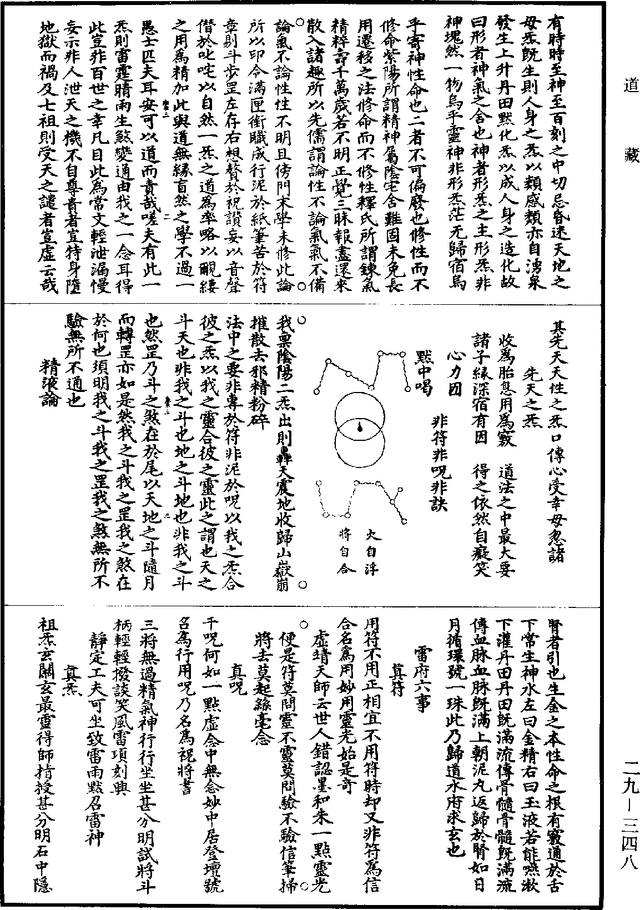 道藏
有時時至神至百刻之中切忌昏迷天地之
母炁既生則人身之炁以類感類亦自湧泉
發生上升丹田黙化炁以成人身之造化故
曰形者神氣之舍也神者形炁之主形炁非
神塊然一物烏乎靈神非形炁茫无歸宿烏
乎寄神性命也二者不可偏廢也修性而不
修命紫陽所謂精神屬陰宅舍難固未免長
用遷移之法修命而不修性釋氏所謂鍊氣
精粹壽千萬歲若不明正覺三昧報盡還來
散入諸趣所以先儒謂論性不論氣氣不備
論氣不論性性不明且傍門末學未修此論
所以印令滿匣銜職成行泥於紙筆苦於符
章剔斗步罡左存右想贊於祝讃妄以音聲
僣於叱咤以自然一炁之道為率略以䙆縷
之用為精加此與道無緣盲然之學不過一
愚士匹夫耳安可以道而責哉嗟夫有此一
炁則雷霆晴雨生煞變通由我之一念耳得
此豈非百世之幸凡目此為當文輕泄漏慢
妄示非人泄天之機不自尊貴者豈特身墮
地獄而禍及七祖則受天之譴者豈虛云哉
其先天天性之炁口傳心受幸毋忽諸
先天之炁
收為胎息用為竅　道法之中最大要
諸子緣深宿有因　得之依然自癡笑
心力因
非符非呪非訣
黙中喝
大自浮
將自合
我稟陰陽二炁出則轟天震地收歸山嶽崩
摧散去邪精粉碎
法中之要非專於符非泥於呪以我之炁合
彼之炁以我之靈合彼之靈此之謂也天之
斗天也非我之斗也地之斗地也非我之斗
也然罡乃斗之煞在於尾以天地之斗隨月
而轉罡亦如是然我之斗我之罡我之煞在
於何也須明我之斗我之罡我之煞無所不
驗無所不通也
精液論
腎者引也生金之本性命之根有竅通於舌
下常生神水左曰金精右曰玉液若能嚥漱
下灌丹田丹田既滿流傳骨髓骨髓既滿流
傳血脉血脉既滿上朝泥丸返歸於腎如日
月循環號一珠此乃歸道水府求玄也
雷府六事
真符
用符不用正相宜不用符時却又非符為信
合名為用妙用靈光始是奇
虛靖天師云世人錯認墨和朱一點靈光
便是符莫問靈不靈莫問驗不驗信筆掃
將去莫起絲毫念
真呪
千呪何如一點虛念中無念妙中居登壇號
召為行用呪乃名為視將書
三將無過精氣神行行坐坐甚分明試將斗
柄輕輕撥談笑風雷頃刻興
靜定工夫可坐致雷雨黙召雷神
真炁
祖炁玄關玄最靈得師指授甚分明石中隱
二九—三四八